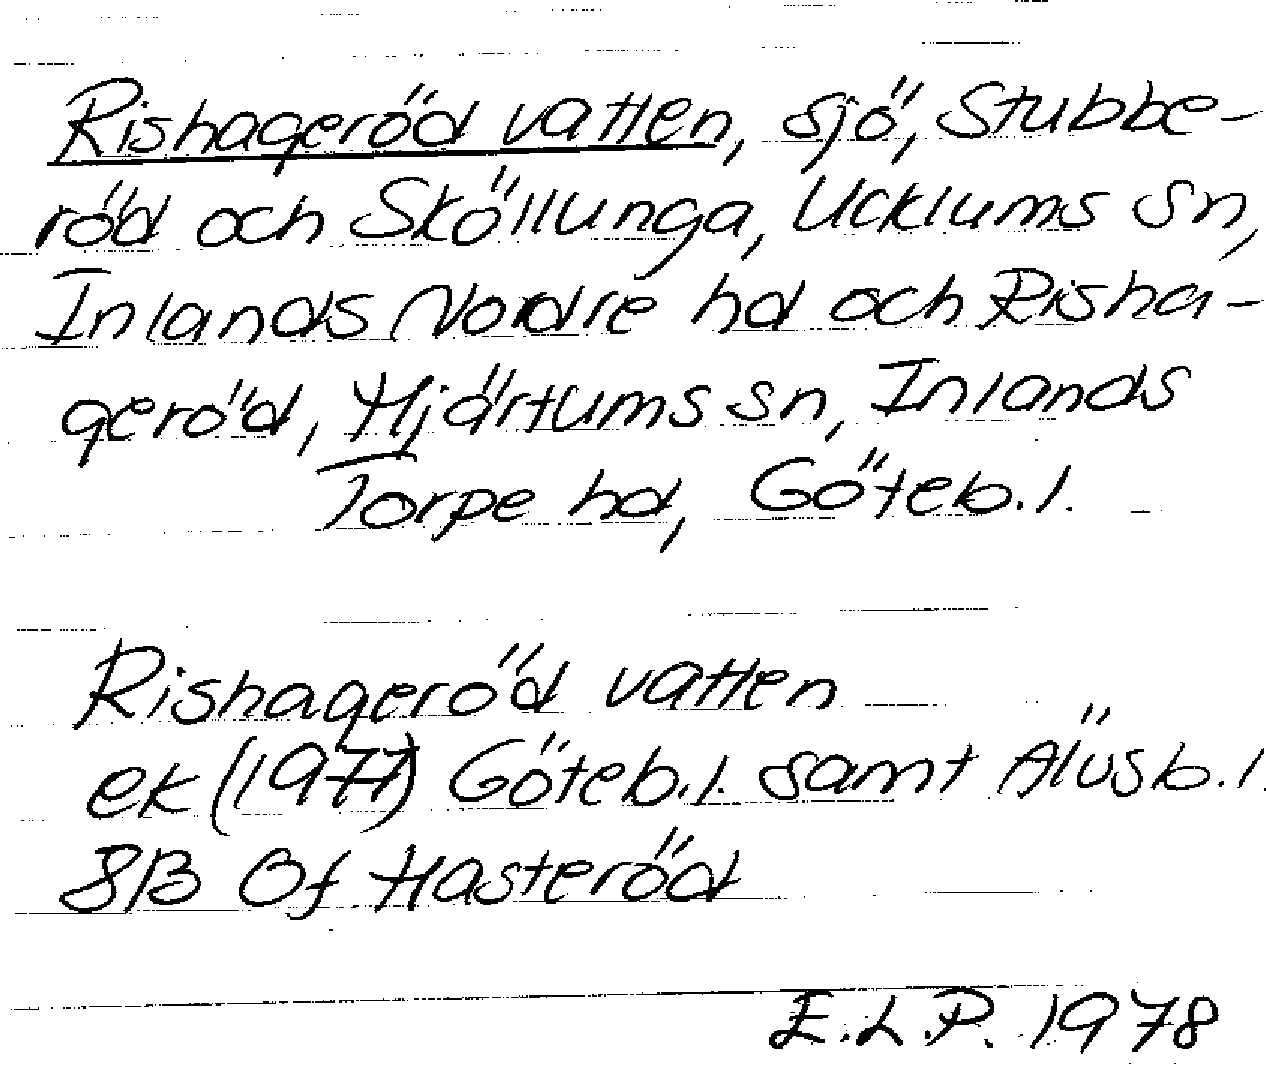 Rishageröd vatten, sjö, Stubbe-
röd och Sköllunga, Ucklums sn,
Inlands Nordre hd och Risha-
geröd, Hjärtums sn, Inlands
Torpe hd, Göteb. l.
Rishageröd vatten
ek (1977) Göteb. l. samt Älvsb. l
8B 0f Hasteröd
E.L.P. 1978